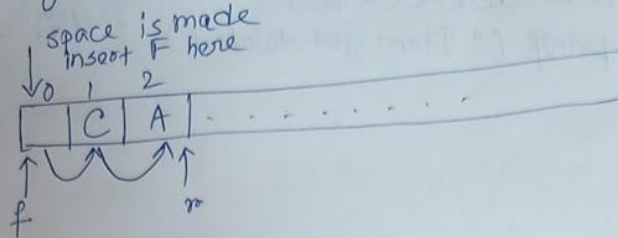 space is made
insert F here
0 1 2
C A
f r